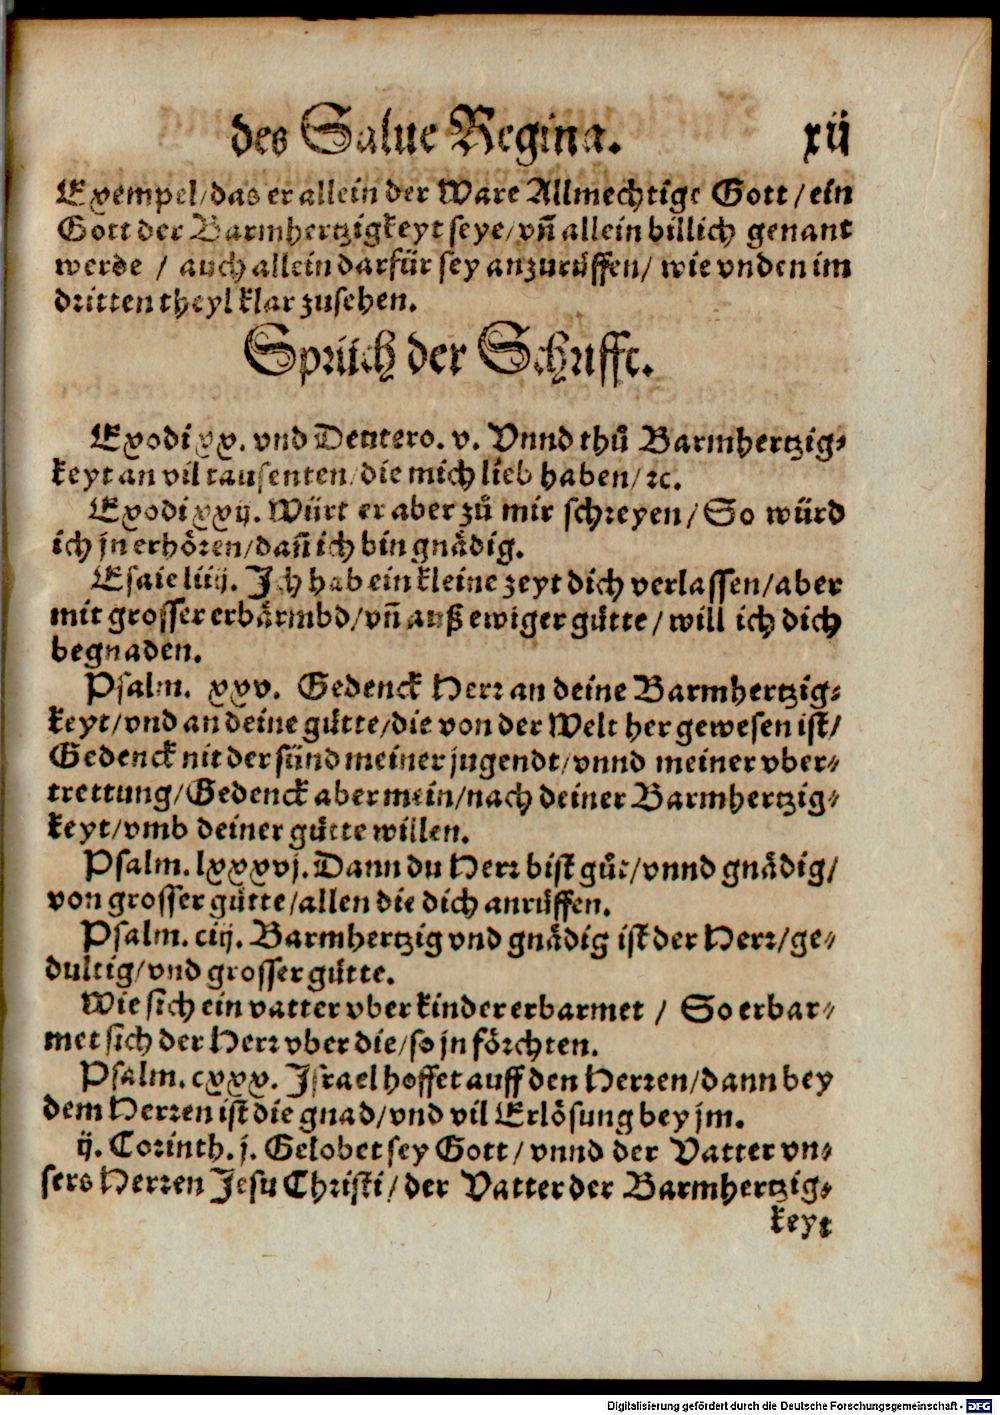 des Salue Regina. xii
Exempel/das er allein der Ware Allmechtige Gott/ein
Gott der Barmhertzigkeyt seye/vñ allein billich genant
werde / auch allein darfür sey anzurůffen/ wie vnden im
dritten theyl klar zusehen.
Sprüch der Schrifft.
Exodi xx. vnd Deutero. v. Vnnd thů Barmhertzig-
keyt an vil tausenten/die mich lieb haben/ꝛc.
Exodi xxij. Würt er aber zů mir schreyen/So würd
ich jn erhören/dañ ich bin gnädig.
Esaie liiij. Ich hab ein kleine zeyt dich verlassen/aber
mit grosser erbärmbd/vñ auß ewiger gůtte/will ich dich
begnaden.
Psalm. xxv. Gedenck Herr an deine Barmhertzig-
keyt/vnd an deine gůtte/die von der Welt her gewesen ist/
Gedenck nit der sünd meiner jugendt/vnnd meiner vber-
trettung/Gedenck aber mein/nach deiner Barmhertzig-
keyt/vmb deiner gůtte willen.
Psalm. lxxxvj. Dann du Herr bist gůt/vnnd gnädig/
von grosser gůtte/allen die dich anrůffen.
Psalm. ciij. Barmhertzig vnd gnädig ist der Herr/ge-
dultig/vnd grosser gůtte.
Wie sich ein vatter vber kinder erbarmet / So erbar-
met sich der Herr vber die/so jn förchten.
Psalm. cxxx. Israel hoffet auff den Herren/dann bey
dem Herren ist die gnad/vnd vil Erlösung bey jm.
ij. Corinth. j. Gelobet sey Gott/vnnd der Vatter vn-
sers Herren Jesu Christi/der Vatter der Barmhertzig-
keyt
Digitalisierung gefördert durch die Deutsche Forschungsgemeinschaft - DFG